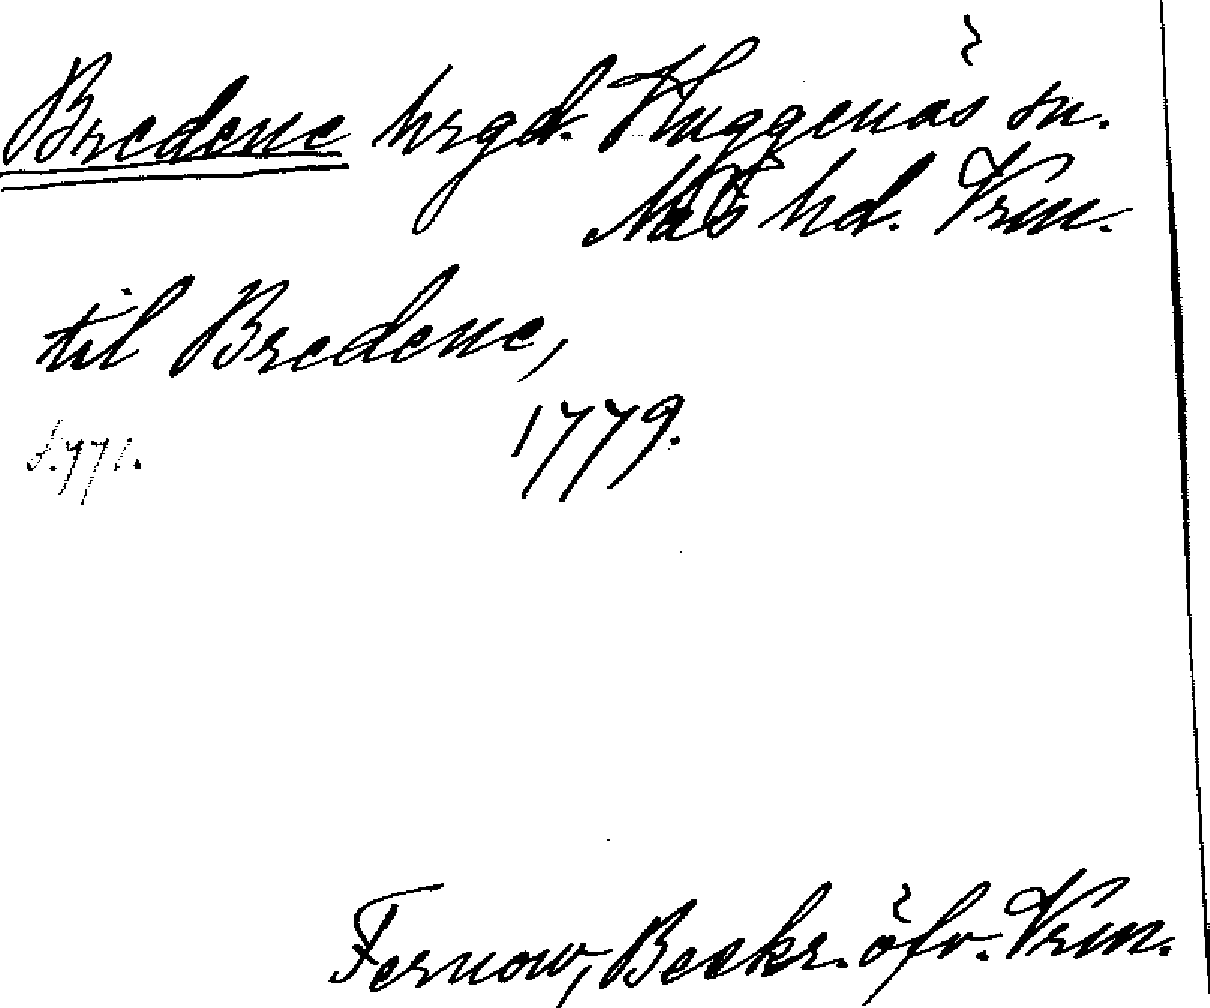 Bredene hrgd. Huggenäs sn.
Näs hd. Vrm.
til Bredene,
1779.
s. 771.
Fernow, Beskr. öfv. Vrm.